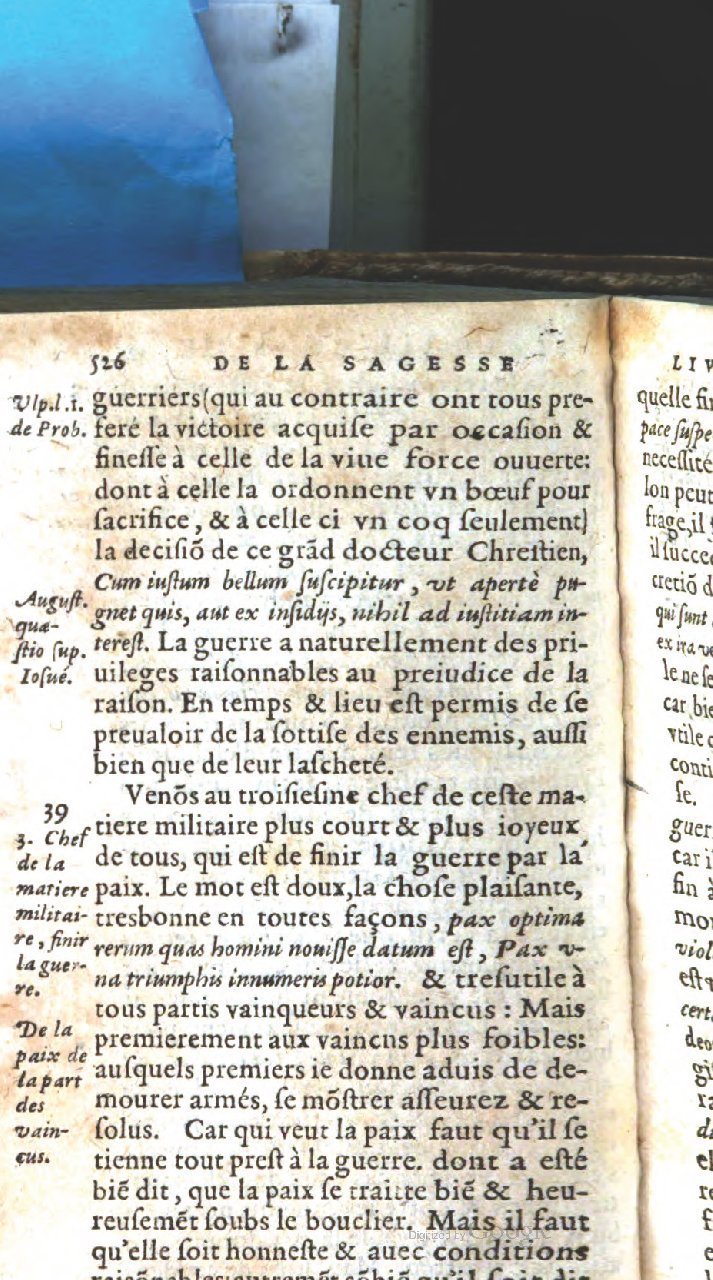 526 DE LA SAGESSE
Vlp.l.1.
de Prob.
guerriers(qui au contraire ont tous pre-
feré la victoire acquise par occasion &
finesse à celle de la viue force ouuerte:
dont à celle la ordonnent vn bœuf pour
sacrifice, & à celle ci vn coq seulement)
la decisiõ de ce grãd docteur Chrestien,
Cum iustum bellum suscipitur, vt apertè pu-
gnet quis, aut ex insidijs, nihil ad iustitiam in-
terest. La guerre a naturellement des pri-
uileges raisonnables au preiudice de la
raison. En temps & lieu est permis de se
preualoir de la sottise des ennemis, aussi
bien que de leur lascheté.
August.
quæ-
stio sup.
Iosué.
Venõs au troisiesme chef de ceste ma-
tiere militaire plus court & plus ioyeux
de tous, qui est de finir la guerre par la
paix. Le mot est doux,la chose plaisante,
tresbonne en toutes façons, pax optima
rerum quas homini nouisse datum est, Pax v-
na triumphis innumeris potior. & tresutile à
tous partis vainqueurs & vaincus : Mais
premierement aux vaincus plus foibles:
ausquels premiers ie donne aduis de de-
mourer armés, se mõstrer asseurez & re-
solus. Car qui veut la paix faut qu'il se
tienne tout prest à la guerre. dont a esté
biẽ dit, que la paix se traitte biẽ & heu-
reusemẽt soubs le bouclier. Mais il faut
qu'elle soit honneste & auec conditions
39
3. Chef
de la
matiere
militai-
re, finir
la guer-
re.
De la
paix de
la part
des
vain-
cus.
LIV
quelle fin
pace suspe
necessité
lon peut
frage,il
il succe
cretiõ d
qui sunt
ex ira ve
le ne se
car bie
vtile
conti
se.
guer
car i
fin à
mo
viol
est
cert
deo
Digitized by Google